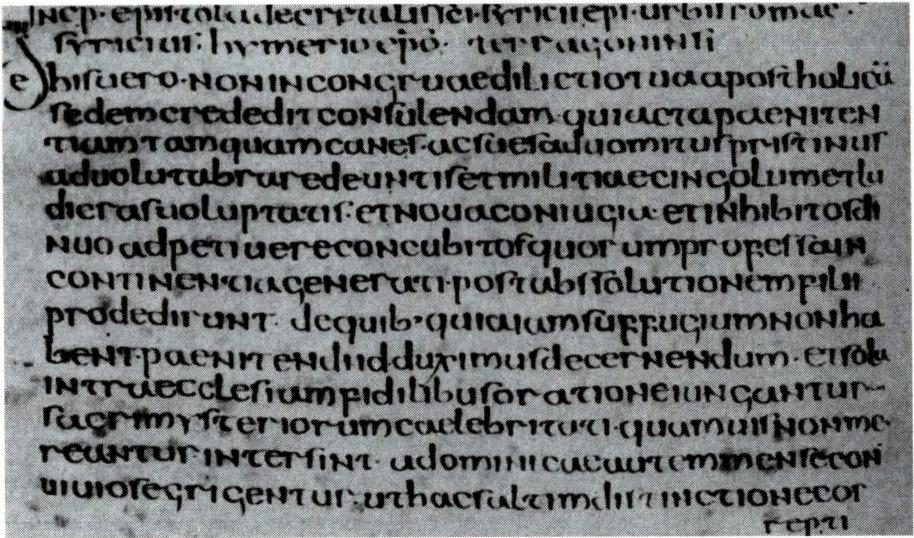 INCP· epistola decretalis sci syricii epi· urbis romae·
syricius: hymerio epō· terragoninsi
e his uero· non incongruae dilictio tua apostholicā
sedem crededit consulendam· qui acta paeniten
tiam tamquam canes· ac sues ad uomitus pristinus
ad uolutabra redeuntis et militiae cingolum et lu
dicras uoluptatis: et noua coniugia· et inhibitos di
nuo adpetiuere concubitos quorum professa in
continentia generati· post abssolutionem filii
prodedirunt· de quib· quia iam suffugium non ha
bent· paenitendi id duximus decernendum· et sola
intra ecclesiam fidilibus oratione iungantur
sacri mysteriorum caelebritati· quamuis non me·
reantur intersint· a dominicae autem mense con
uiuio segrigentur· ut hac saltim distinctione cor
repti